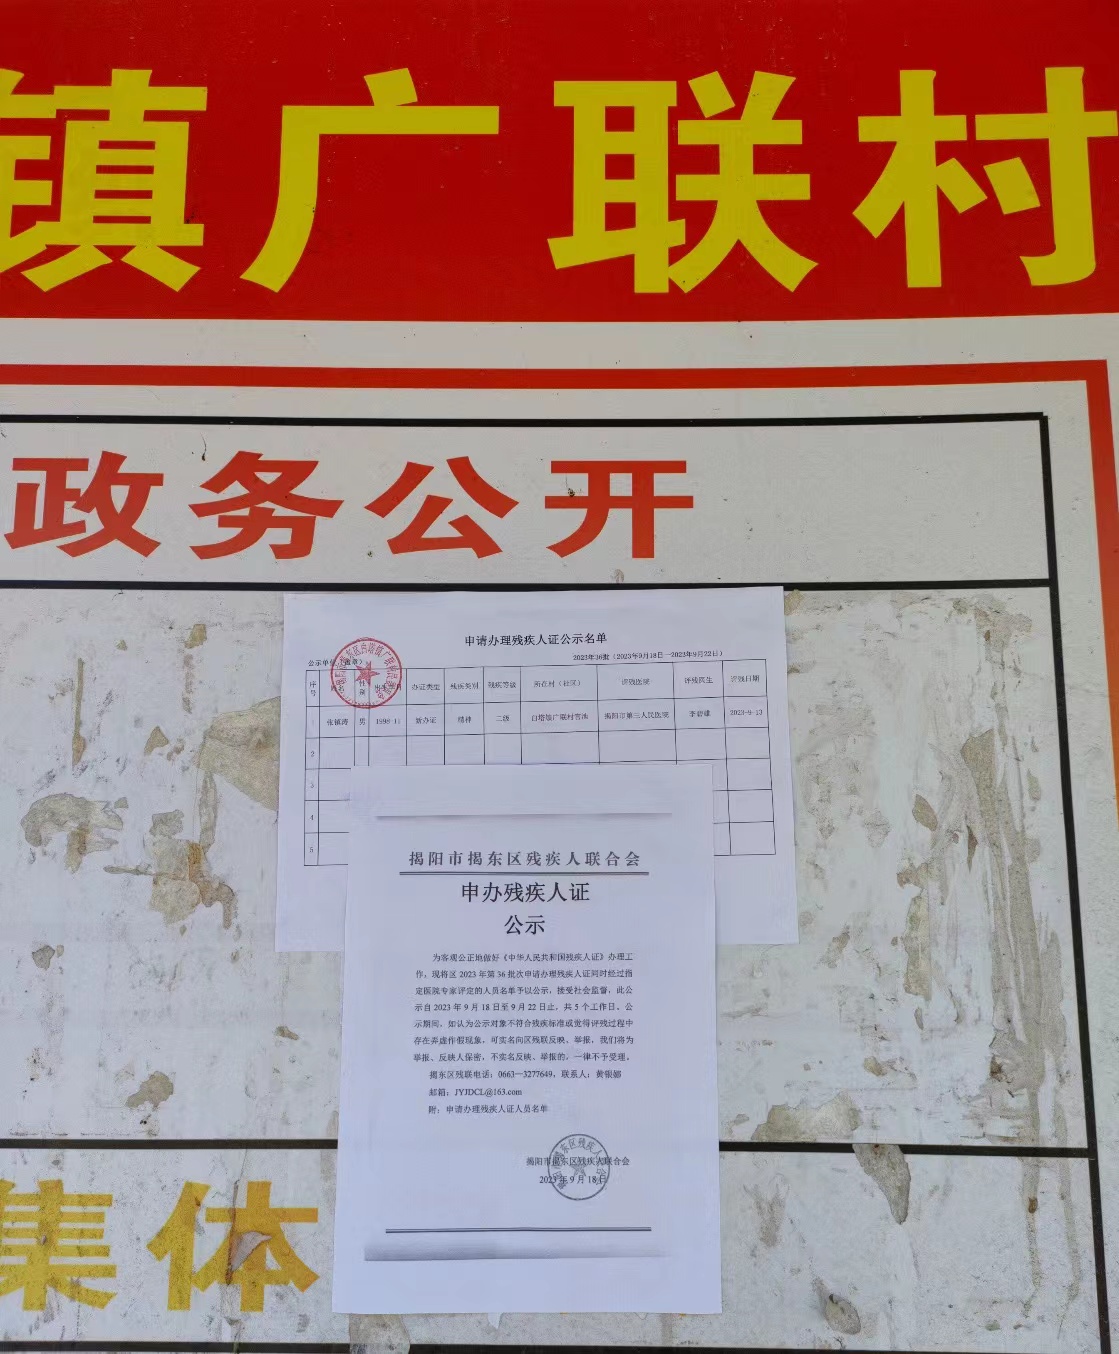 镇广联村
政务公开
申请办理残疾人证公示名单
2023年36批（2023年9月18日—2023年9月22日）
公示单位（盖章）
序号 性别 办证类型 残疾类别 残疾等级 所在村（社区） 评残医院 评残医生 评残日期
1 张镇涛 男 1998-11 新办证 精神 二级 白塔镇广联村 揭阳市第三人民医院 2023-9-13
2
3
4
5
揭阳市揭东区残疾人联合会
申办残疾人证
公示
为客观公正地做好《中华人民共和国残疾人证》办理工
作，现将区 2023 年第 36 批次申请办理残疾人证同时经过指
定医院专家评定的人员名单予以公示，接受社会监督，此公
示自 2023 年 9 月 18 日至 9 月 22 日止，共 5 个工作日。公
示期间，如认为公示对象不符合残疾标准或觉得评残过程中
存在弄虚作假现象，可实名向区残联反映、举报，我们将为
举报、反映人保密，不实名反映、举报的，一律不予受理。
揭东区残联电话：0663—3277649，联系人：黄银
邮箱：JYJDCL@163.com
附：申请办理残疾人证人员名单
揭阳市揭东区残疾人联合会
2023 年 9 月 18 日
集体